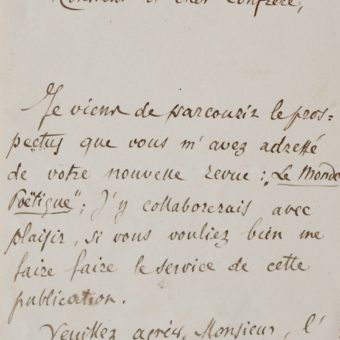 Monsieur et cher Confrère,
Je viens de parcourir le pros-
pectus que vous m'avez adressé
de votre nouvelle revue: "Le Monde
Poëtique"; j'y collaborerais avec
plaisir, si vous vouliez bien me
faire faire le service de cette
publication.
Veuillez agréer, Monsieur, l'